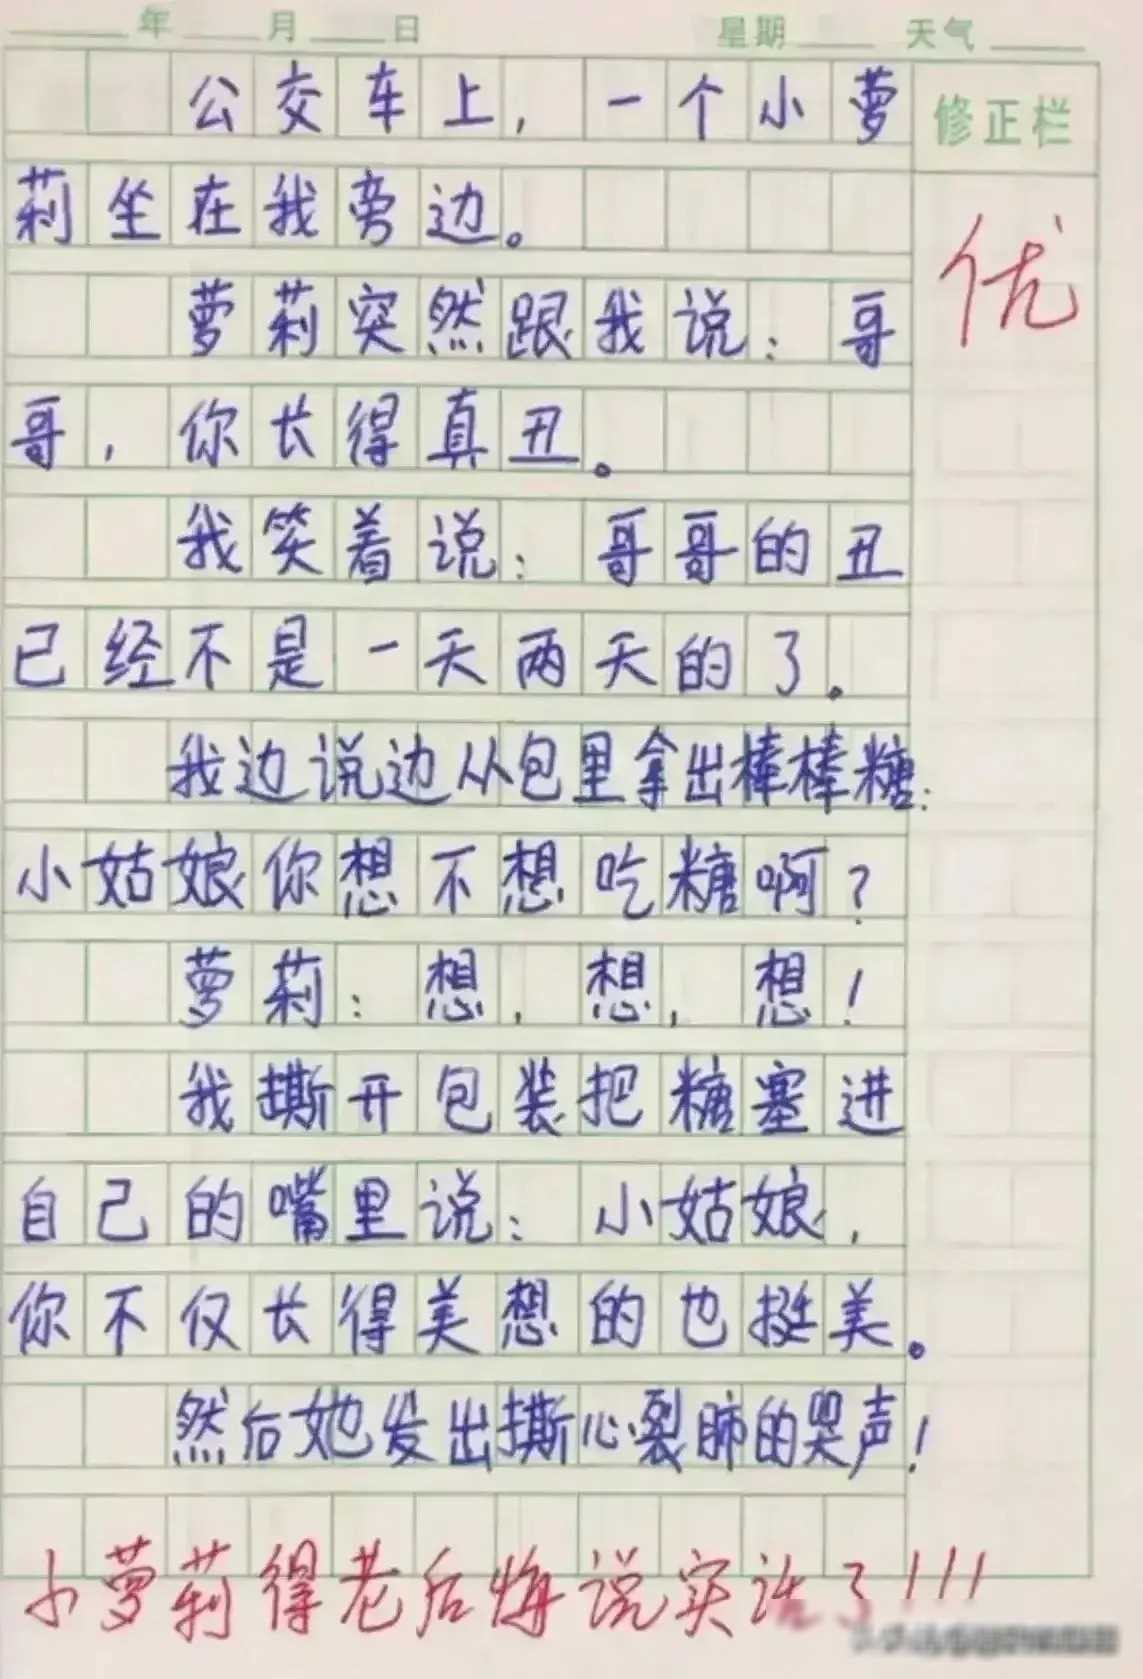 年 月 日 星期 天气
公交车上，一个小萝
修正栏
莉坐在我旁边。
优
萝莉突然跟我说：哥
哥，你长得真丑。
我笑着说：哥哥的丑
已经不是一天两天的了。
我边说边从包里拿出棒棒糖：
小姑娘你想不想吃糖啊？
萝莉：想，想，想！
我撕开包装把糖塞进
自己的嘴里说：小姑娘，
你不仅长得美想的也挺美。
然后她发出撕心裂肺的哭声！
小萝莉得老后悔说实话了！！！